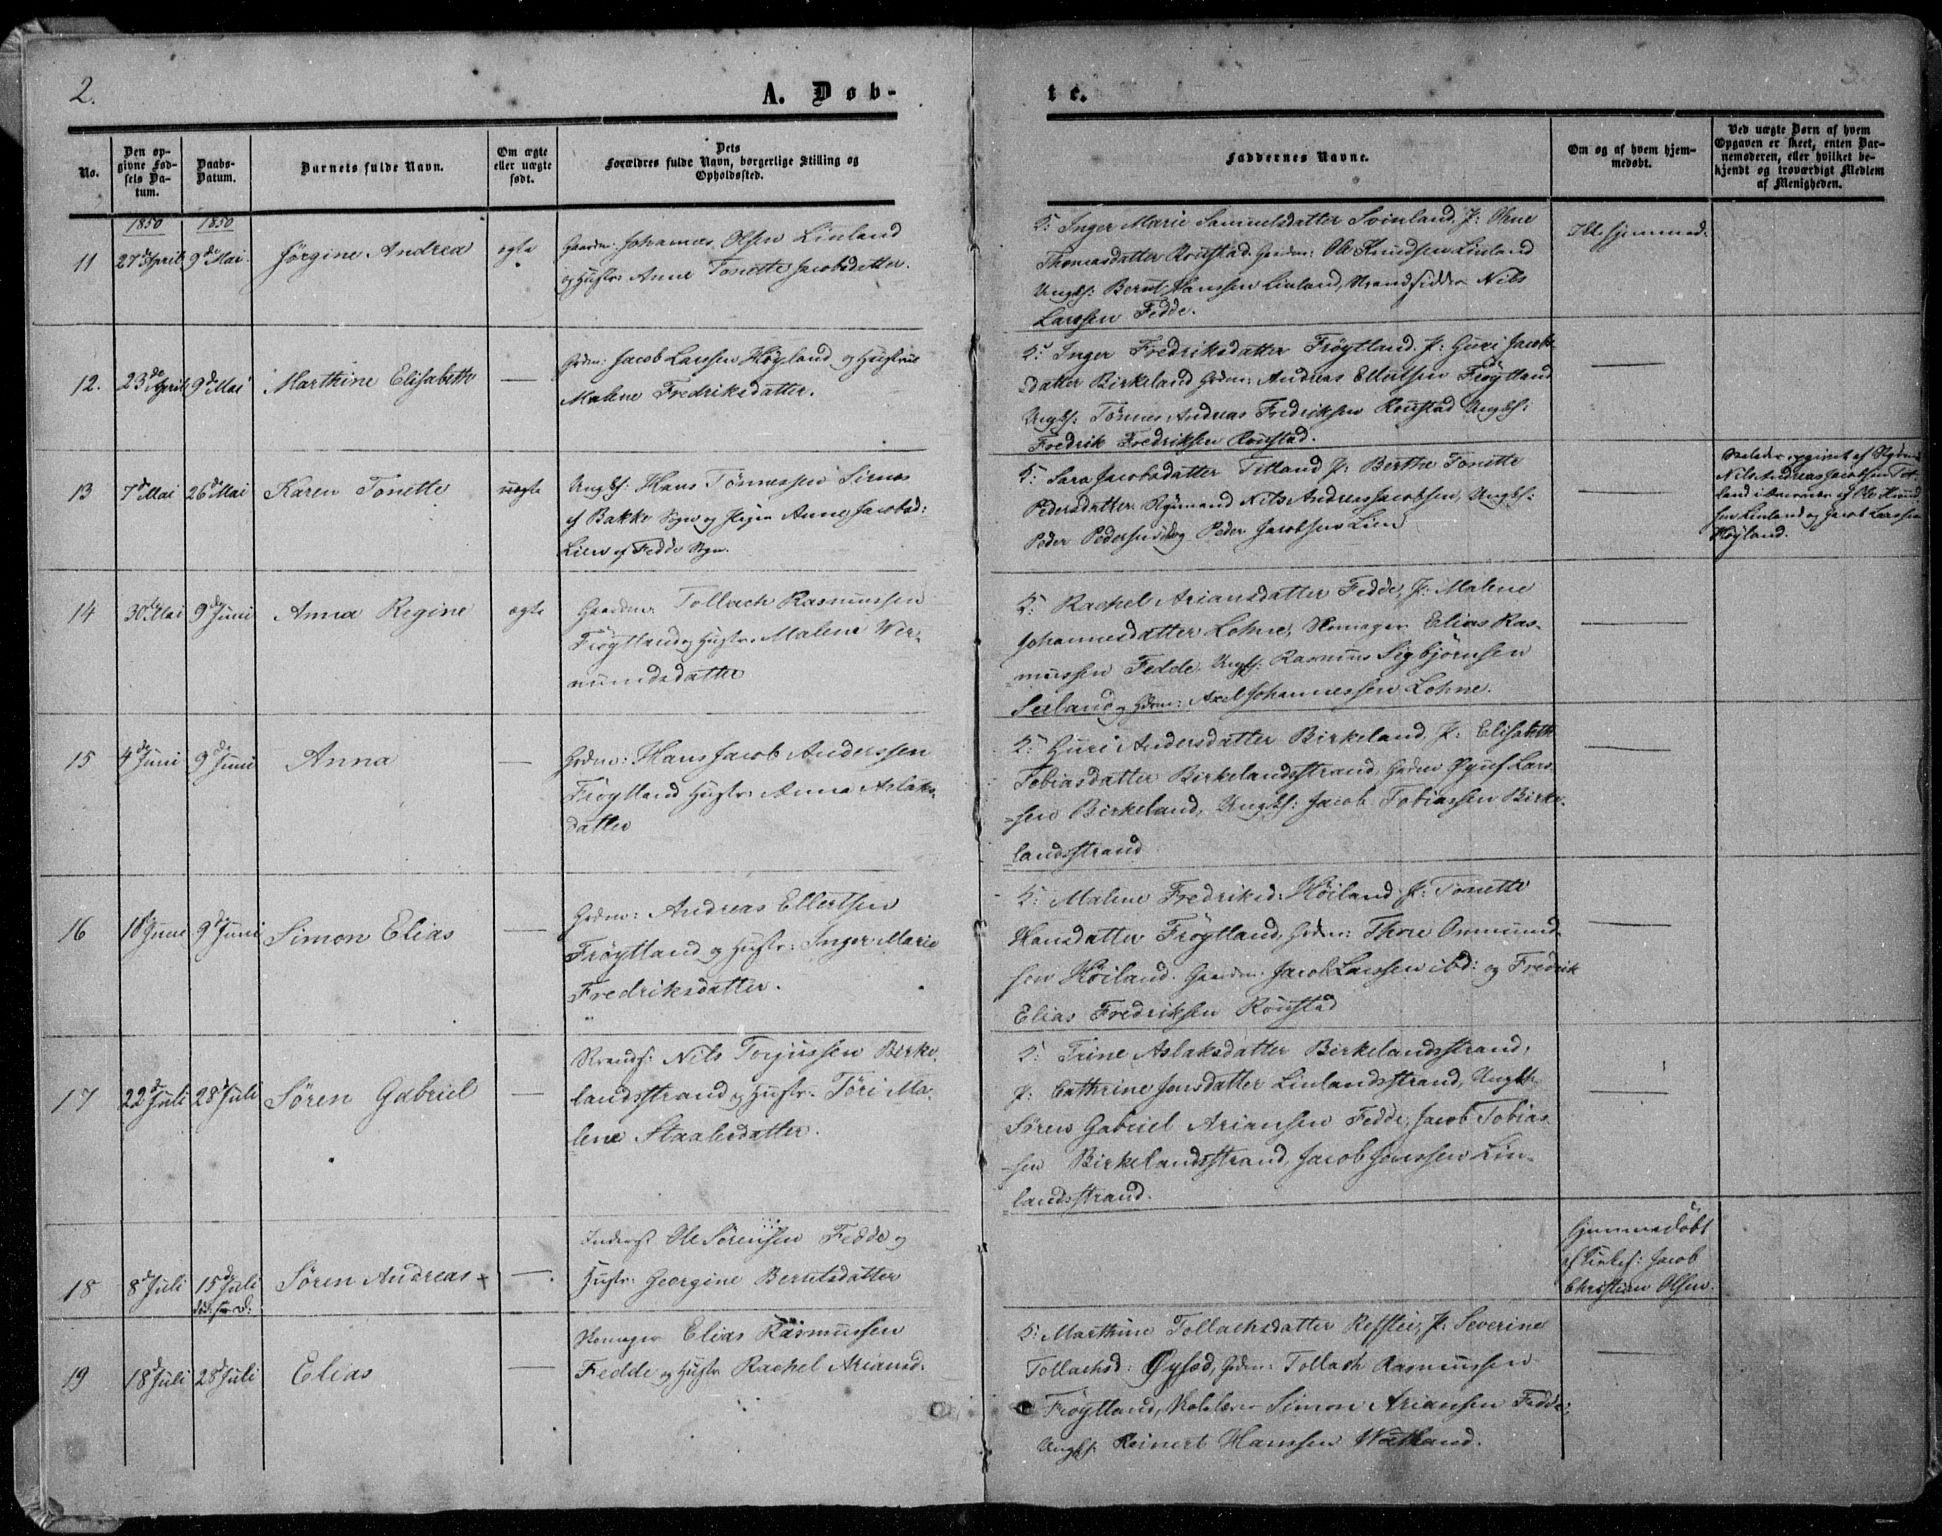 2.
A. Døb-
te.
No.
Den op-
givne Fød-
sels Da-
tum.
Daabs-
Datum.
Barnets fulde Navn.
Om ægte
eller uægte
født.
Dets
Forældres fulde Navn, borgerlige Stilling og
Opholdssted.
Faddernes Navne.
Om og af hvem hjem-
medøbt.
Ved uægte Børn af hvem
Opgaven er skeet, enten Bar-
nemoderen, eller hvilket be-
kjendt og troværdigt Medlem
af Menigheden.
1850
1850
11
27d April
9d Mai
Jørgine Andrea
ægte
Gaardm: Johannes Olsen Linland
og Hustr: Anne Tonette Jacobsdatter.
K: Inger Marie Samuelsdatter Svinland, P: Ohne
Thomasdatter Roustad. Gaardm: Ole Knudsen Linland
Ungks: Bernt Hanssen Linland, Strandsidder Nils
Larssen Fedde.
Ikke hjemmed.
12.
23de April
9d Mai
Marthine Elisabeth
—
Grdm: Jacob Larssen Høyland og Hustrue
Malene Fredriksdatter.
K: Inger Fredriksdatter Frøytland. P: Guri Jacobs
datter Birkeland Grdm: Andreas Ellertsen Frøytland
Ungks: Tønnes Andreas Fredriksen Roustad Ungks:
Fredrik Fredriksen Roustad.
—
13
7d Mai
26d Mai
Karen Tonette
uægte
Ungks: Hans Tønnessen Sirnes
af Bakke Sogn og Pigen Anne Jacobsd:
Lien af Fedde Sogn.
K: Sara Jacobsdatter Tetland P: Berthe Tonette
Pedersdatter Nils Andreas Jacobsen, Ungks:
Peder Pedersen og Peder Jacobsen Lien
opgivet af
Nils Andreas Jacobsen Tet-
land i Nærvær af Ole Knud-
sen Linland og Jacob Larssen
Høyland.
14
30d Mai
9d Juni
Anna Regine
ægte
Gaardm: Tollach Rasmussen
Frøytland og Hustr: Malene Wer-
mundsdatter
K: Rachel Ariansdatter Fedde, P: Malene
Johannesdatter Lohne, Skomager Elias Ras-
mussen Fedde. Ungks: Rasmus Sigbjørnsen
Seeland og Grdm: Axel Johannessen Lohne.
—
15
4d Juni
9d Juni
Anna
—
Grdm: Hans Jacob Anderssen
Frøytland Hustr: Anna Aslaks-
datter
K: Guri Andersdatter Birkeland, P: Elisabeth
Tobiasdatter Birkelandsstrand, Grdm Gjuf Lars-
sen Birkeland, Ungks: Jacob Tobiassen Birke-
landsstrand
—
16
1d Juni
9d Juni
Simon Elias
—
Grdm: Andreas Ellertsen
Frøytland og Hustr: Inger Marie
Fredriksdatter.
K: Malene Fredriksd: Høiland. P: Tonette
Hansdatter Frøytland, Grdm: Thore Onmund-
sen Høiland. Gaardm: Jacob Larssen ibd: og Fredrik
Elias Fredriksen Roustad
—
17
22d Juli
28d Juli
Søren Gabriel
—
Strands: Nils Torjussen Birke-
landsstrand og Hustr. Tøri Ma-
lene Staalesdatter.
K: Trine Aslaksdatter Birkelandsstrand,
P: Cathrine Jonsdatter Linlandsstrand, Ungks:
Søren Gabriel Ariansen Fedde, Jacob Tobias-
sen Birkelandsstrand, Jacob Jonssen Lin-
landsstrand.
—
18
8d Juli
15d Juli
Søren Andreas +
—
Inderst Ole Sørensen Fedde og
Hustr: Georgine Berntsdatter
hjemmedøbt
af Jacob
Christian Olsen.
19
18d Juli
28d Juli
Elias
—
Skomager Elias Rasmussen
Fedde og Hustr Rachel Ariansd:
K: Marthine Tollachsdatter Refstie, P: Severine
Tollachsd: Øysæd, Grdm: Tollach Rasmussen
Frøytland, Simon Ariansen Fedde,
Ungks: Reinert Hanssen Watland.
—